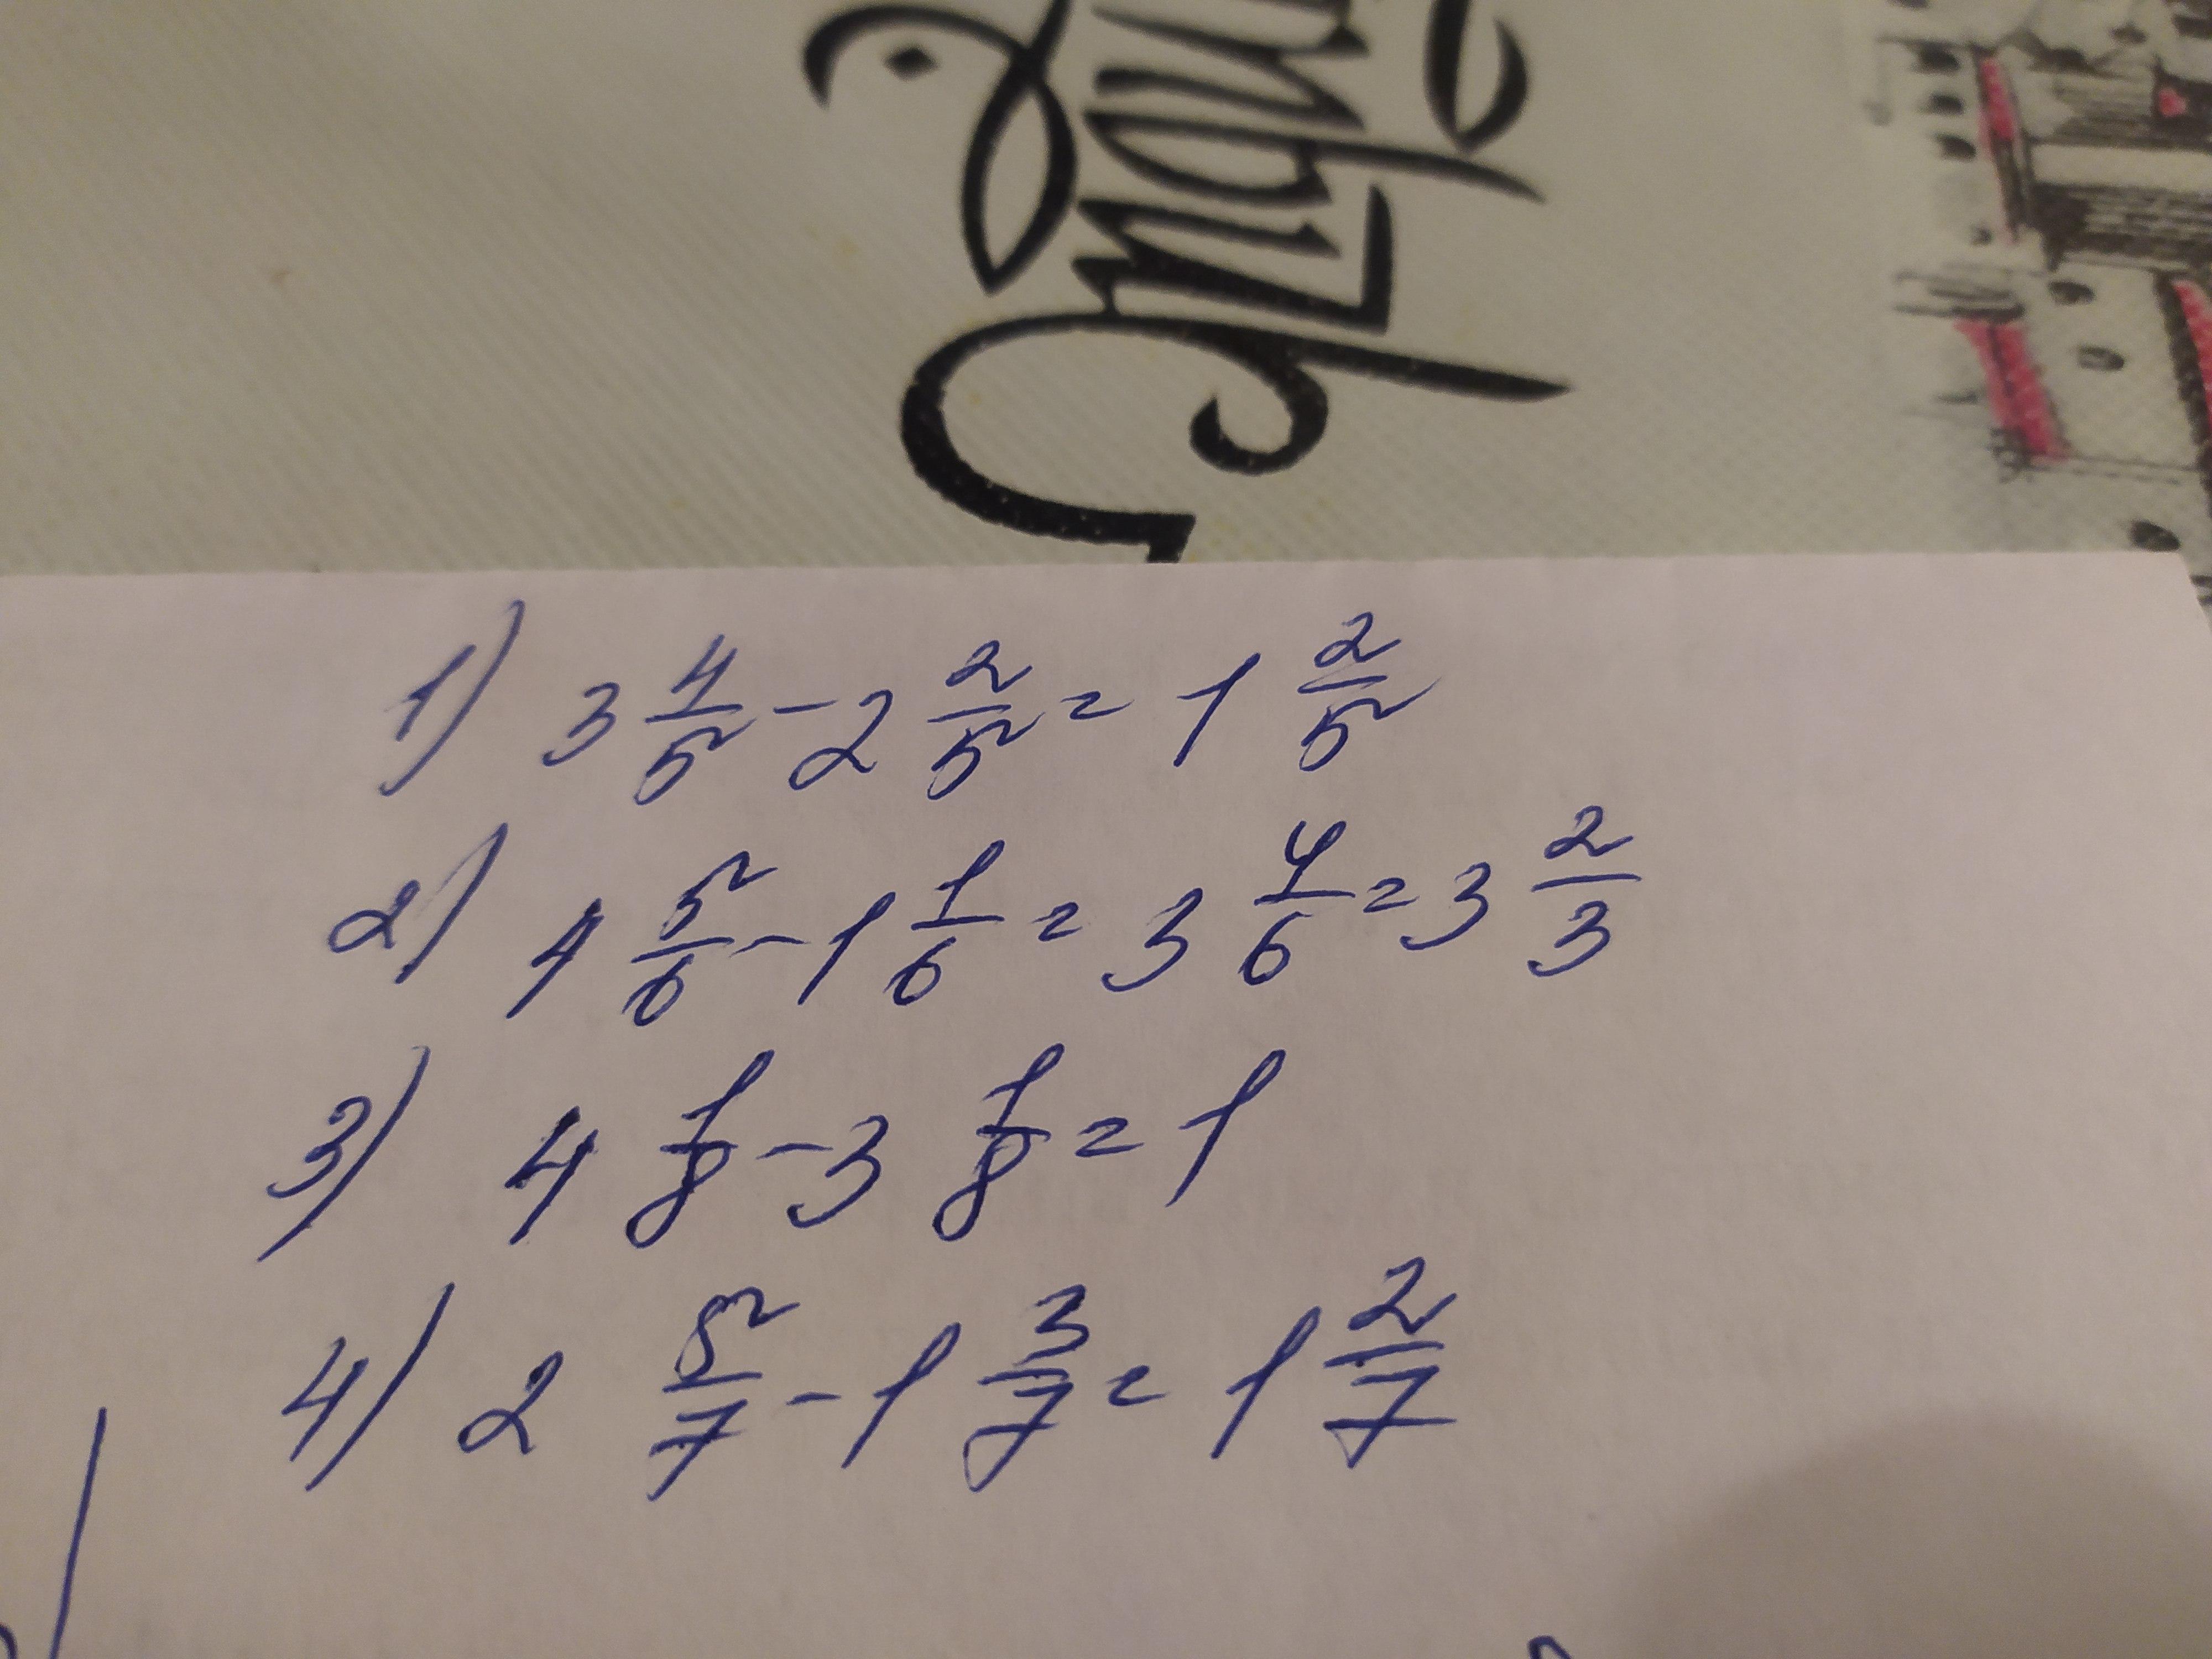 1) 3 4/5 - 2 2/5 = 1 2/5
2) 4 5/6 - 1 1/6 = 3 4/6 = 3 2/3
3) 4 1/8 - 3 1/8 = 1
4) 2 5/7 - 1 3/7 = 1 2/7